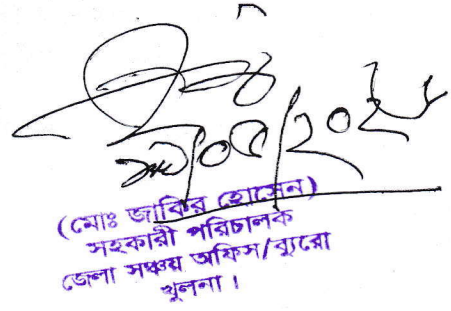 (মোঃ জাকির হোসেন)
সহকারী পরিচালক
জেলা সঞ্চয় অফিস/ব্যুরো
খুলনা।